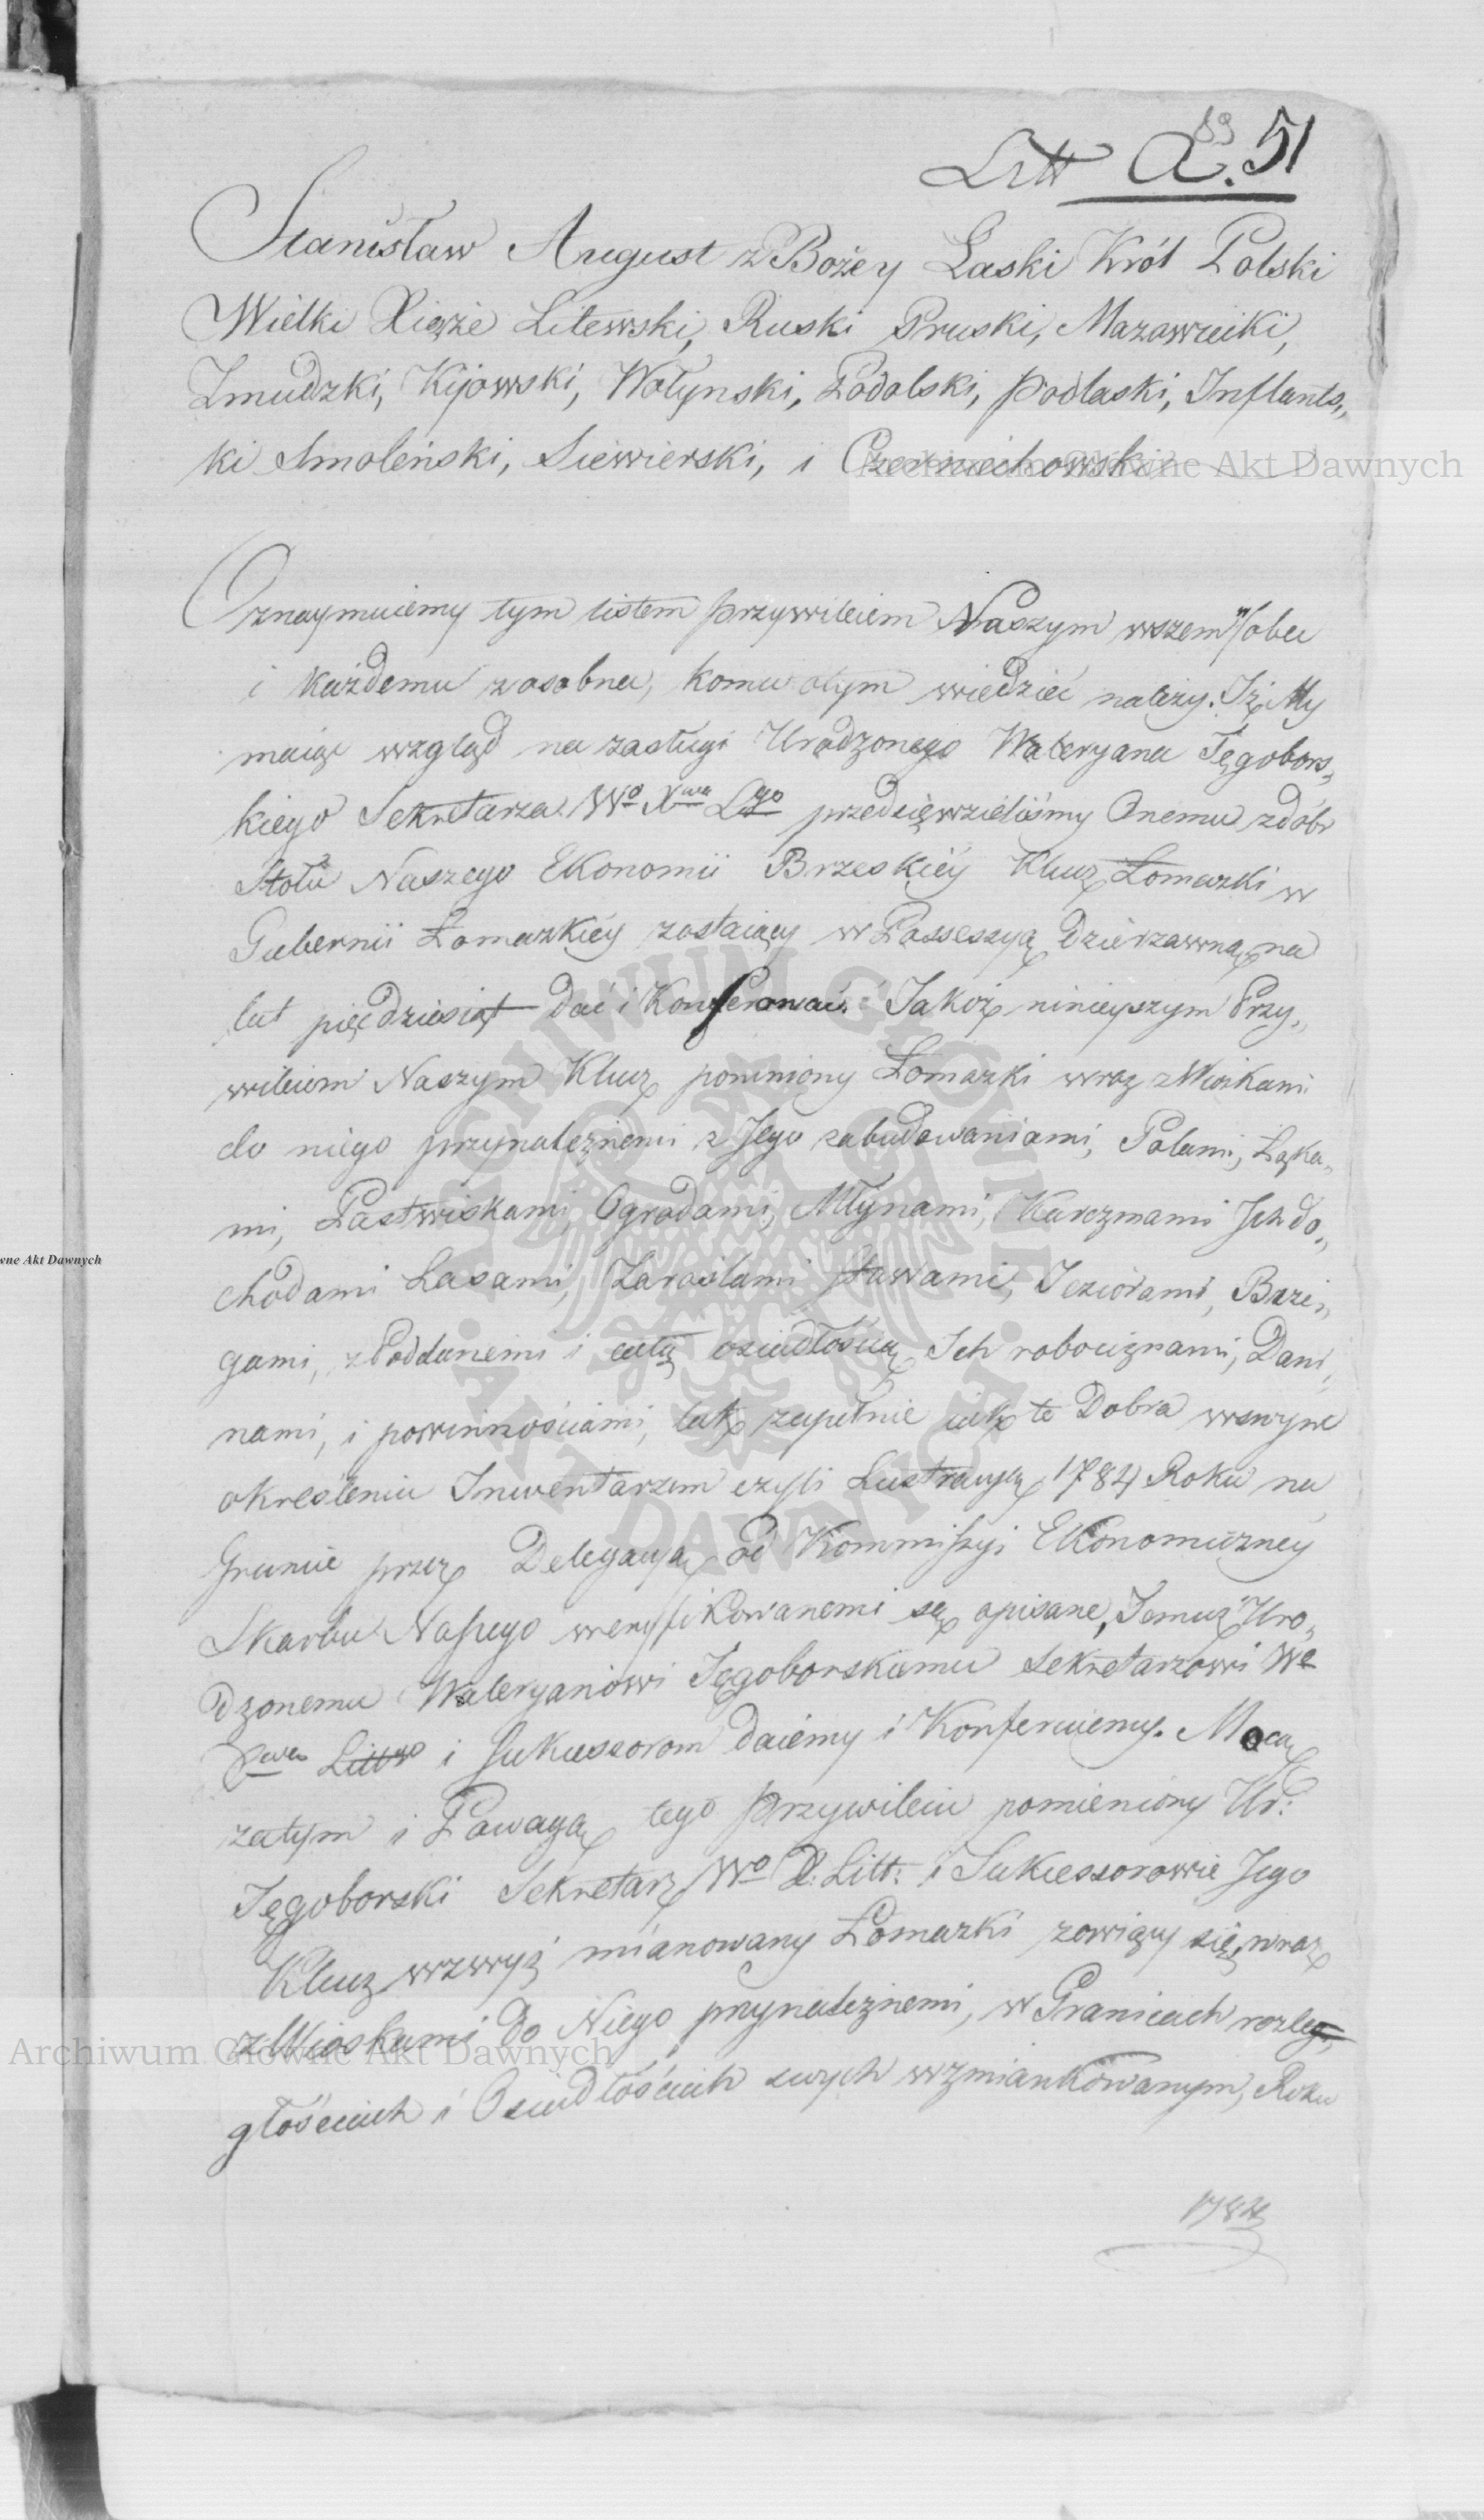 89
Litt A. 51
Stanisław August z Bożey Łaski Król Polski
Wielki Xiąże Litewski, Ruski Pruski, Mazowiecki,
Zmudzki, Kijowski, Wołynski, Podolski, Podlaski, Inflants„
ki Smoleński, Siewierski, i Czerniechowski
Oznaymuiemy tym listem przywileiem Naszym wszem w obec
i każdemu zosobna, komu otym wiedzieć należy. Iż My
maiąc wzgląd na zasługi Urodzonego Waleryana Tęgobors„
kiego Sekretarza Wo Xwa Lgo przedsięwzieliśmy Onemu zdóbr
Stołu Naszego Ekonomii Brzeskiéy Klucz Łomazki w
Gubernii Łomazkiéy zostaiący w Possessyą dzierzawną na
lat pięcdziesiąt dać i Konferować. Jakoż ninieyszym Przy„
wileiem Naszym Klucz pomniony Łomazki wraz z Wioskami
do niego przynależnemi z Jego zabudowaniami, Polami, Łąka„
mi, Pastwiskami, Ogrodami, Młynami, Karczmami Ich do„
chodami Lasami, Zaroslami stawami, Jeziorami, Brze„
gami, z Poddanemi i całą osiadłością Ich robociznami, Dani„
nami, i powinnościami, tak zupełnie iak te Dobra wswym
okresleniu Inwentarzem czyli Lustracyą 1784 Roku na
Gruncie przez Delegacyą od Kommissyi Ekonomiczney
Skarbu Naszego weryfikowanemi są opisane, Temuż Uro„
dzonemu Waleryanowi Tęgoborskiemu Sekretarzowi We
Xwa Littgo i Sukcessorom daiemy i Konferuiemy. Mocą
zatym i Powagą tego przywileiu pomieniony Ur:
Tęgoborski Sekretarz Wo X: Litt: i Sukcessorowie Jego
Klucz wzwyż mianowany Łomazki zowiący się, wraz
z Wioskami do Niego przynależnemi, w Granicach rozle„
głościach i Osiadłościach swych wzmiankowanym, Roku
1784
Archiwum Główne Akt Dawnych
wne Akt Dawnych
ARCHIWUM GŁÓWNE AKT DAWNYCH
Archiwum Główne Akt Dawnych